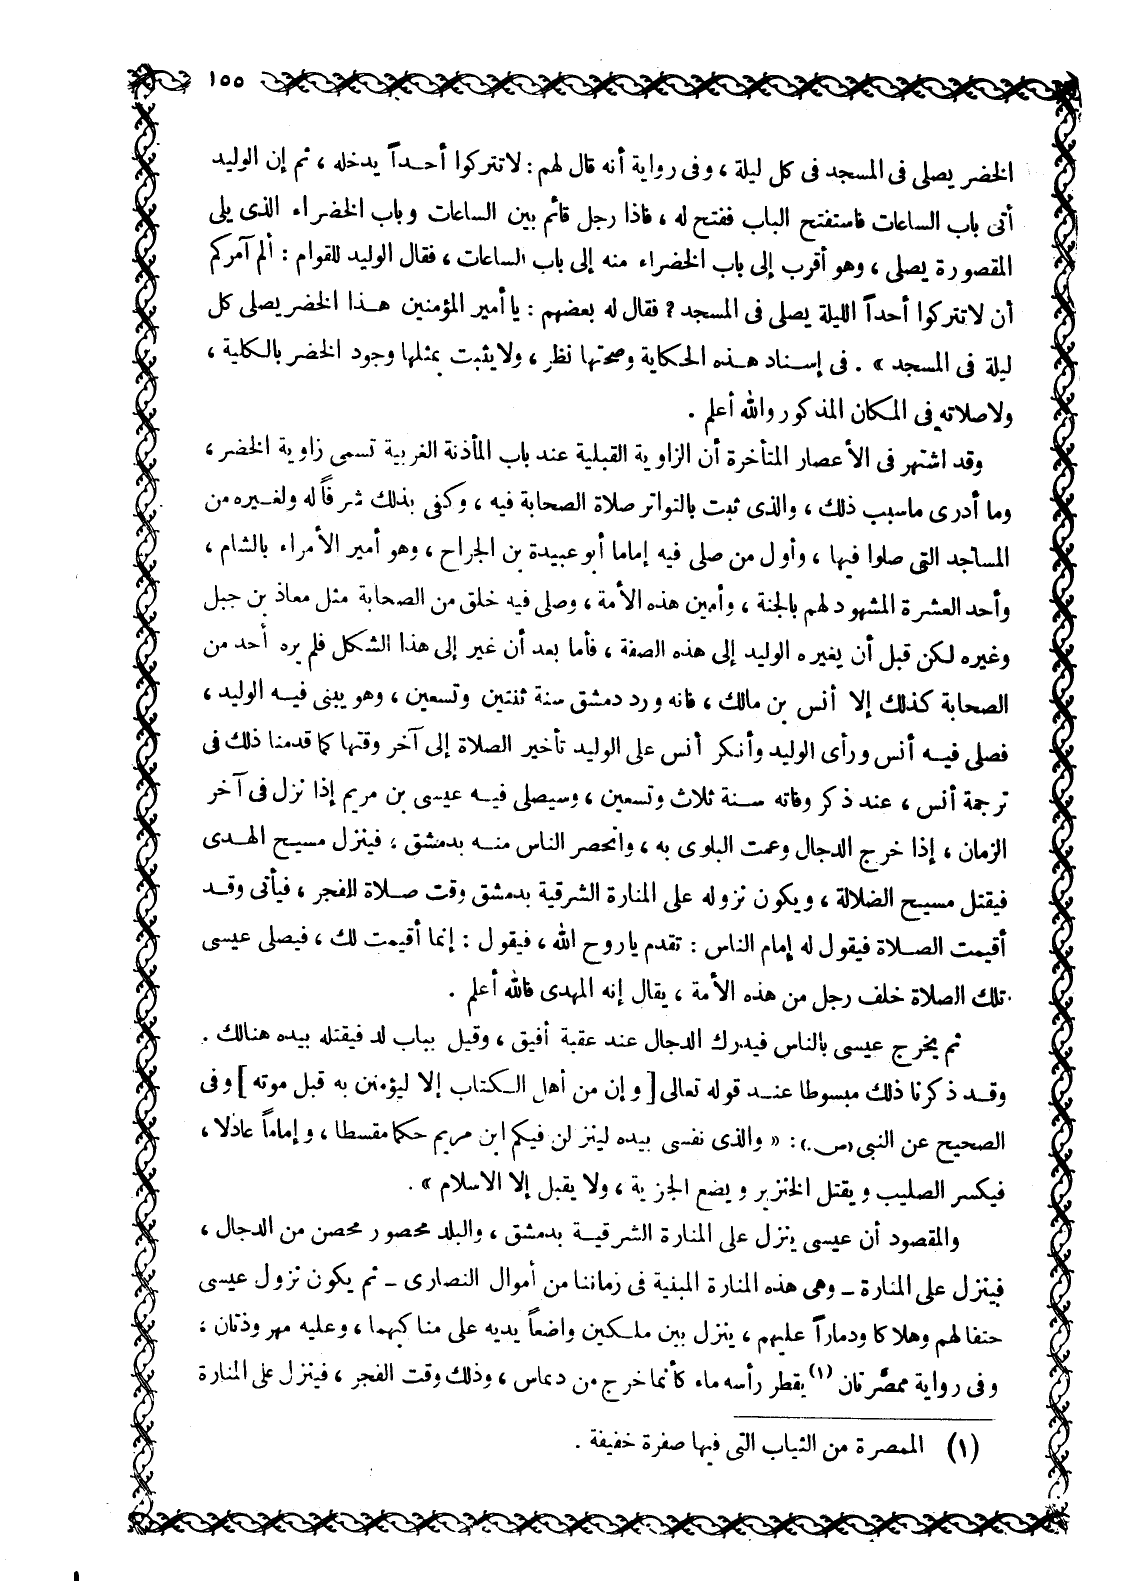 ١٥٥
الخضر يصلى فى المسجد فى كل ليلة ، وفى رواية أنه قال لهم : لاتتركوا أحداً يدخله ، ثم إن الوليد
أتى باب الساعات فاستفتح الباب ففتح له ، فاذا رجل قائم بين الساعات وباب الخضراء الذى يلى
المقصورة يصلى ، وهو أقرب إلى باب الخضراء منه إلى باب الساعات ، فقال الوليد للقوام : ألم آمركم
أن لاتتركوا أحداً الليلة يصلى فى المسجد ؟ فقال له بعضهم : يا أمير المؤمنين هذا الخضر يصلى كل
ليلة فى المسجد » . فى إسناد هذه الحكاية وصحتها نظر ، ولا يثبت بمثلها وجود الخضر بالكلية ،
ولاصلاته فى المكان المذكور والله أعلم .
وقد اشتهر فى الأعصار المتأخرة أن الزاوية القبلية عند باب المأذنة الغربية تسمى زاوية الخضر ،
وما أدرى ماسبب ذلك ، والذى ثبت بالتواتر صلاة الصحابة فيه ، وكفى بذلك شرفاً له ولغيره من
المساجد التى صلوا فيها ، وأول من صلى فيه إماما أبو عبيدة بن الجراح ، وهو أمير الأمراء بالشام ،
وأحد العشرة المشهود لهم بالجنة ، وأمين هذه الأمة ، وصلى فيه خلق من الصحابة مثل معاذ بن جبل
وغيره لكن قبل أن يغيره الوليد إلى هذه الصفة ، فأما بعد أن غير إلى هذا الشكل فلم يره أحد من
الصحابة كذلك إلا أنس بن مالك ، فانه ورد دمشق سنة ثنتين وتسعين ، وهو يبنى فيه الوليد ،
فصلى فيه أنس ورأى الوليد وأنكر أنس على الوليد تأخير الصلاة إلى آخر وقتها كما قدمنا ذلك فى
ترجمة أنس ، عند ذكر وفاته سنة ثلاث وتسعين ، وسيصلى فيه عيسى بن مريم إذا نزل فى آخر
الزمان ، إذا خرج الدجال وعمت البلوى به ، وانحصر الناس منه بدمشق ، فينزل مسيح الهدى
فيقتل مسيح الضلالة ، ويكون نزوله على المنارة الشرقية بدمشق وقت صلاة الفجر ، فيأتى وقد
أقيمت الصلاة فيقول له إمام الناس : تقدم ياروح الله ، فيقول : إنما أقيمت لك ، فيصلى عيسى
تلك الصلاة خلف رجل من هذه الأمة ، يقال إنه المهدى فالله أعلم .
ثم يخرج عيسى بالناس فيدرك الدجال عند عقبة أفيق ، وقيل بباب لد فيقتله بيده هنالك .
وقد ذكرنا ذلك مبسوطا عند قوله تعالى [ وإن من أهل الكتاب إلا ليؤمنن به قبل موته ] وفى
الصحيح عن النبى (س.) : « والذى نفسى بيده لينزلن فيكم ابن مريم حكما مقسطا ، وإماماً عادلا ،
فيكسر الصليب ويقتل الخنزير ويضع الجزية ، ولا يقبل إلا الاسلام » .
والمقصود أن عيسى ينزل على المنارة الشرقية بدمشق ، والبلد محصور محصن من الدجال ،
فينزل على المنارة ــ وهى هذه المنارة المبنية فى زماننا من أموال النصارى ــ ثم يكون نزول عيسى
حتفا لهم وهلاكا ودماراً عليهم ، ينزل بين ملكين واضعاً يديه على مناكبهما ، وعليه مهروذتان ،
وفى رواية ممصَّرتان (١) يقطر رأسه ماء كأنما خرج من ديماس ، وذلك وقت الفجر ، فينزل على المنارة
(١) الممصرة من الثياب التى فيها صفرة خفيفة .